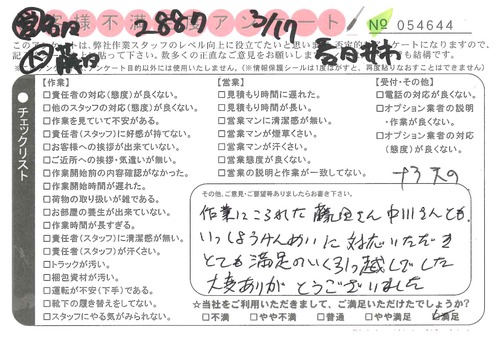 客様不満 度アンケート
2887
3/17
№ 054644
春日井市
このアンケートは、弊社作業スタッフのレベル向上に役立てたいと思い 不定的 ケートになりますので、
貼って下さい。数多くの正直なご意見をお願いしま も結構です。
アンケート目的以外には使用いたしません。(※情報保護シールは1度はがすと、再度貼りなおすことはできません)
チェックリスト
【作業】
□責任者の対応(態度)が良くない。
□他のスタッフの対応(態度)が良くない。
□作業を見ていて不安がある。
□責任者(スタッフ)に好感が持てない。
□お客様への挨拶が出来ていない。
□ご近所への挨拶・気遣いが無い。
□作業開始前の内容確認がなかった。
□作業開始時間が遅れた。
□荷物の取り扱いが雑である。
□お部屋の養生が出来ていない。
□作業時間が長すぎる。
□責任者(スタッフ)に清潔感が無い。
□責任者(スタッフ)が汗くさい。
□トラックが汚い。
□梱包資材が汚い。
□運転が不安(下手)である。
□靴下の履き替えをしてない。
□スタッフにやる気がみられない。
【営業】
□見積もり時間に遅れた。
□見積もり時間が長い。
□営業マンに清潔感が無い。
□営業マンが煙草くさい。
□営業マンが汗くさい。
□営業態度が良くない。
□営業の説明と作業が一致してない。
【受付・その他】
□電話の対応が良くない。
□オプション業者の説明
・作業が良くない。
□オプション業者の対応
(態度)が良くない。
その他、ご意見・ご要望等ありましたらお書き下さい。
作業にこられた藤田さん中川さんとも、
いっしょうけんめいに対応いただき
とても満足のいく引っ越しでした
大変ありがとうございました
☆当社をご利用いただきまして、ご満足いただけたでしょうか?
□不満 □やや不満 □普通 □やや満足 □満足